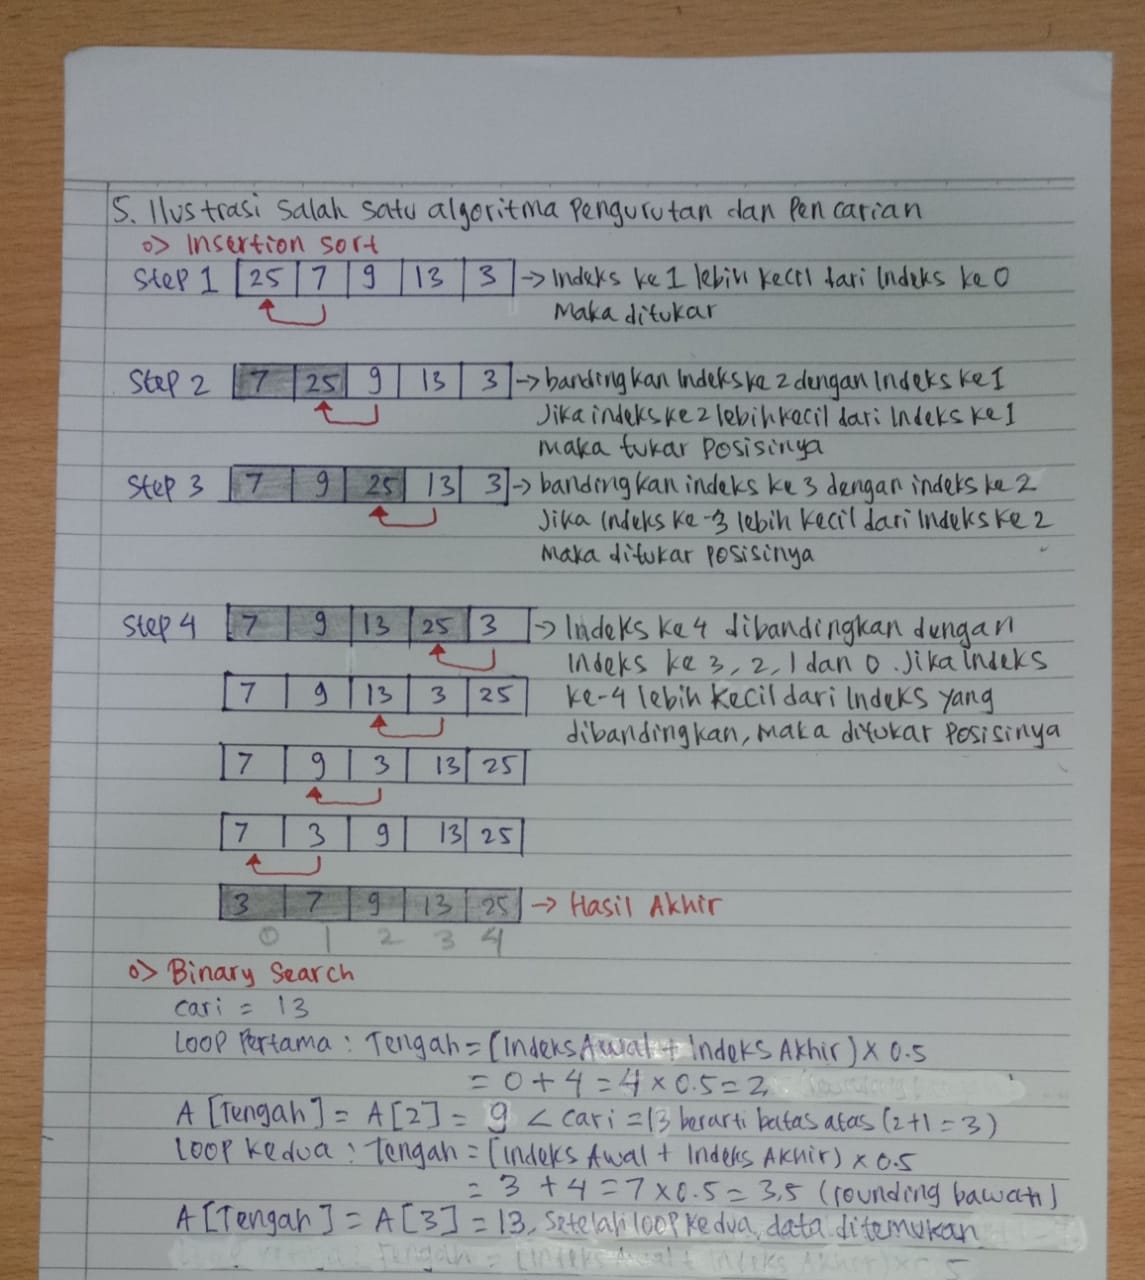 5. Ilustrasi Salah satu algoritma Pengurutan dan Pencarian
o> Insertion sort
Step 1 25 7 9 13 3 → Indeks ke 1 lebih kecil dari Indeks ke 0
Maka ditukar
Step 2 7 25 9 13 3 → bandingkan Indeks ke 2 dengan Indeks ke 1
Jika indeks ke 2 lebih kecil dari Indeks ke 1
Maka tukar Posisinya
Step 3 7 9 25 13 3 → bandingkan indeks ke 3 dengan indeks ke 2
Jika Indeks ke-3 lebih kecil dari Indeks ke 2
Maka ditukar Posisinya
Step 4 7 9 13 25 3 → Indeks ke 4 dibandingkan dengan
Indeks ke 3, 2, 1 dan 0. Jika Indeks
7 9 13 3 25 ke-4 lebih kecil dari Indeks yang
dibandingkan, Maka ditukar Posisinya
7 9 3 13 25
7 3 9 13 25
3 7 9 13 25 → Hasil Akhir
0 1 2 3 4
o> Binary Search
Cari = 13
Loop Pertama : Tengah = (Indeks Awal + Indeks Akhir) x 0.5
= 0 + 4 = 4 x 0.5 = 2
A [Tengah] = A[2] = 9 < cari = 13 berarti batas atas (2+1 = 3)
Loop Kedua : Tengah = (Indeks Awal + Indeks Akhir) x 0.5
= 3 + 4 = 7 x 0.5 = 3,5 (rounding bawah)
A [Tengah] = A[3] = 13, Setelah loop kedua, data ditemukan
Tengah = (Indeks Awal + Indeks Akhir) x 0.5